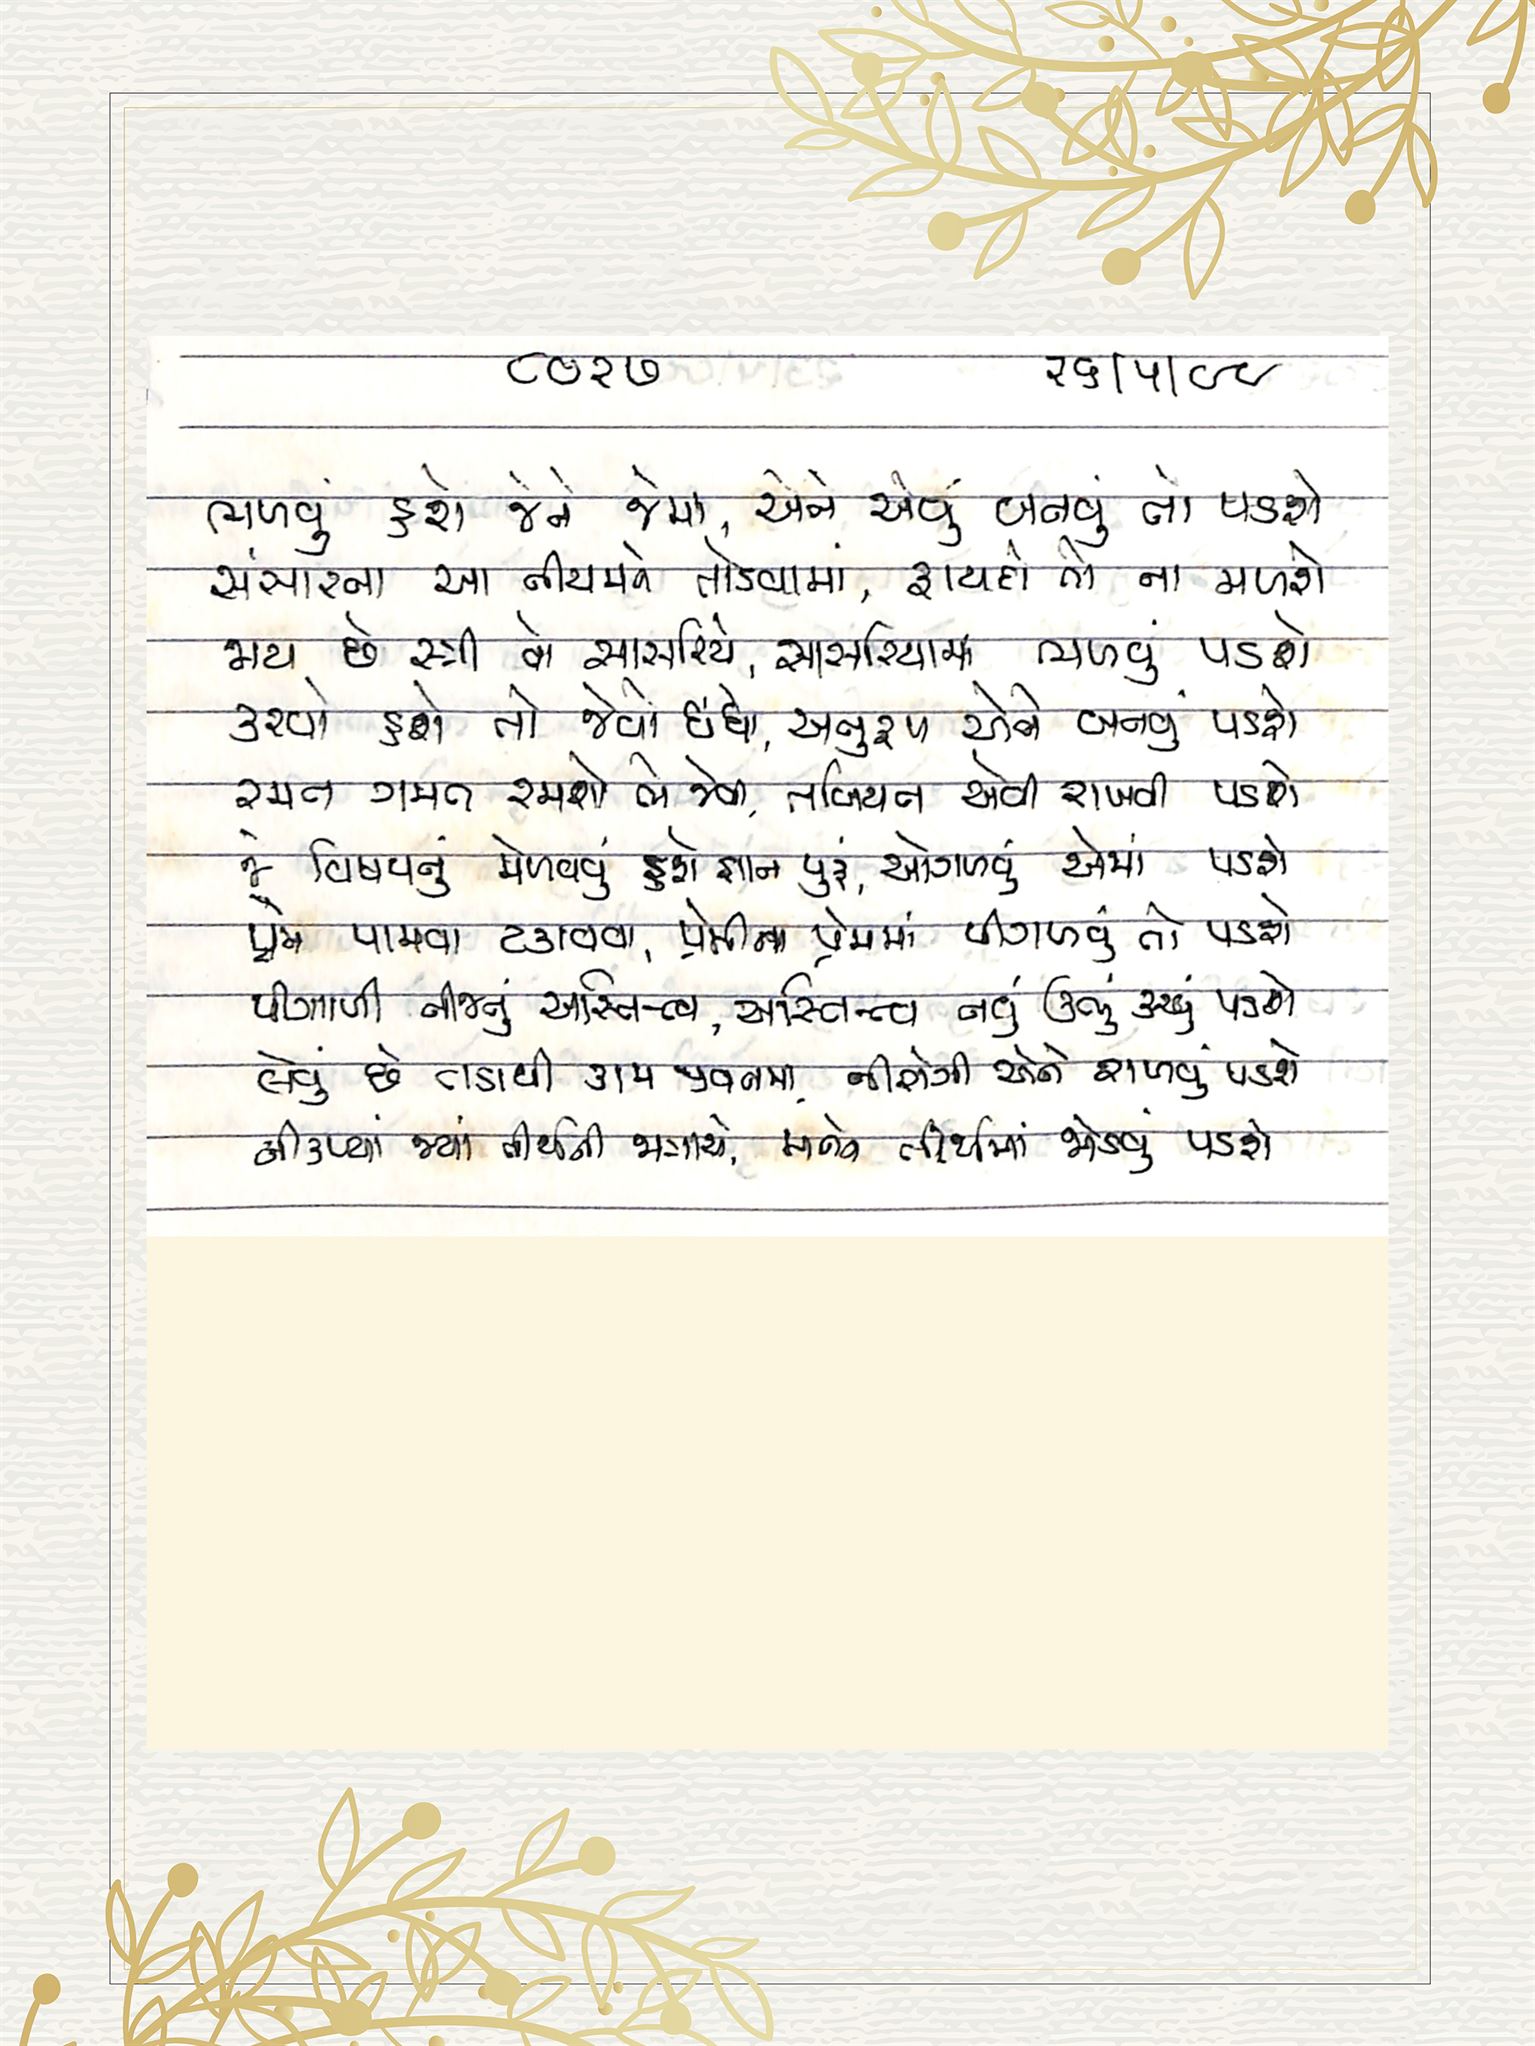 ૮૭૨૭ ૨૬/૫/૯૯
ભળવું હશે જેને જેમાં, એને એવું બનવું તો પડશે
સંસારના આ નીયમને તોડવામાં, ફાયદો તો ના મળશે
ભય છે સ્ત્રી તો સાસરિયે, સાસરિયામાં ભળવું પડશે
કરવો હશે તો જેવો ધંધો, અનુરૂપ એને બનવું પડશે
રમત ગમત રમશો જેવી, તબિયત એવી રાખવી પડશે
જે વિષયનું મેળવવું હશે જ્ઞાન પુરૂં, ઓગળવું એમાં પડશે
પ્રેમ પામવા ટકાવવા, પ્રેમીના પ્રેમમાં પીગળવું તો પડશે
પીગાળી નીજનું અસ્તિત્વ, અસ્તિત્વ નવું ઊભું કરવું પડશે
લેવું છે તડાથી કામ જીવનમાં, નીરોગી એને રાખવું પડશે
નીકળ્યાં જ્યાં તીર્થની જાત્રાયે, મનને તીર્થમાં જોડવું પડશે